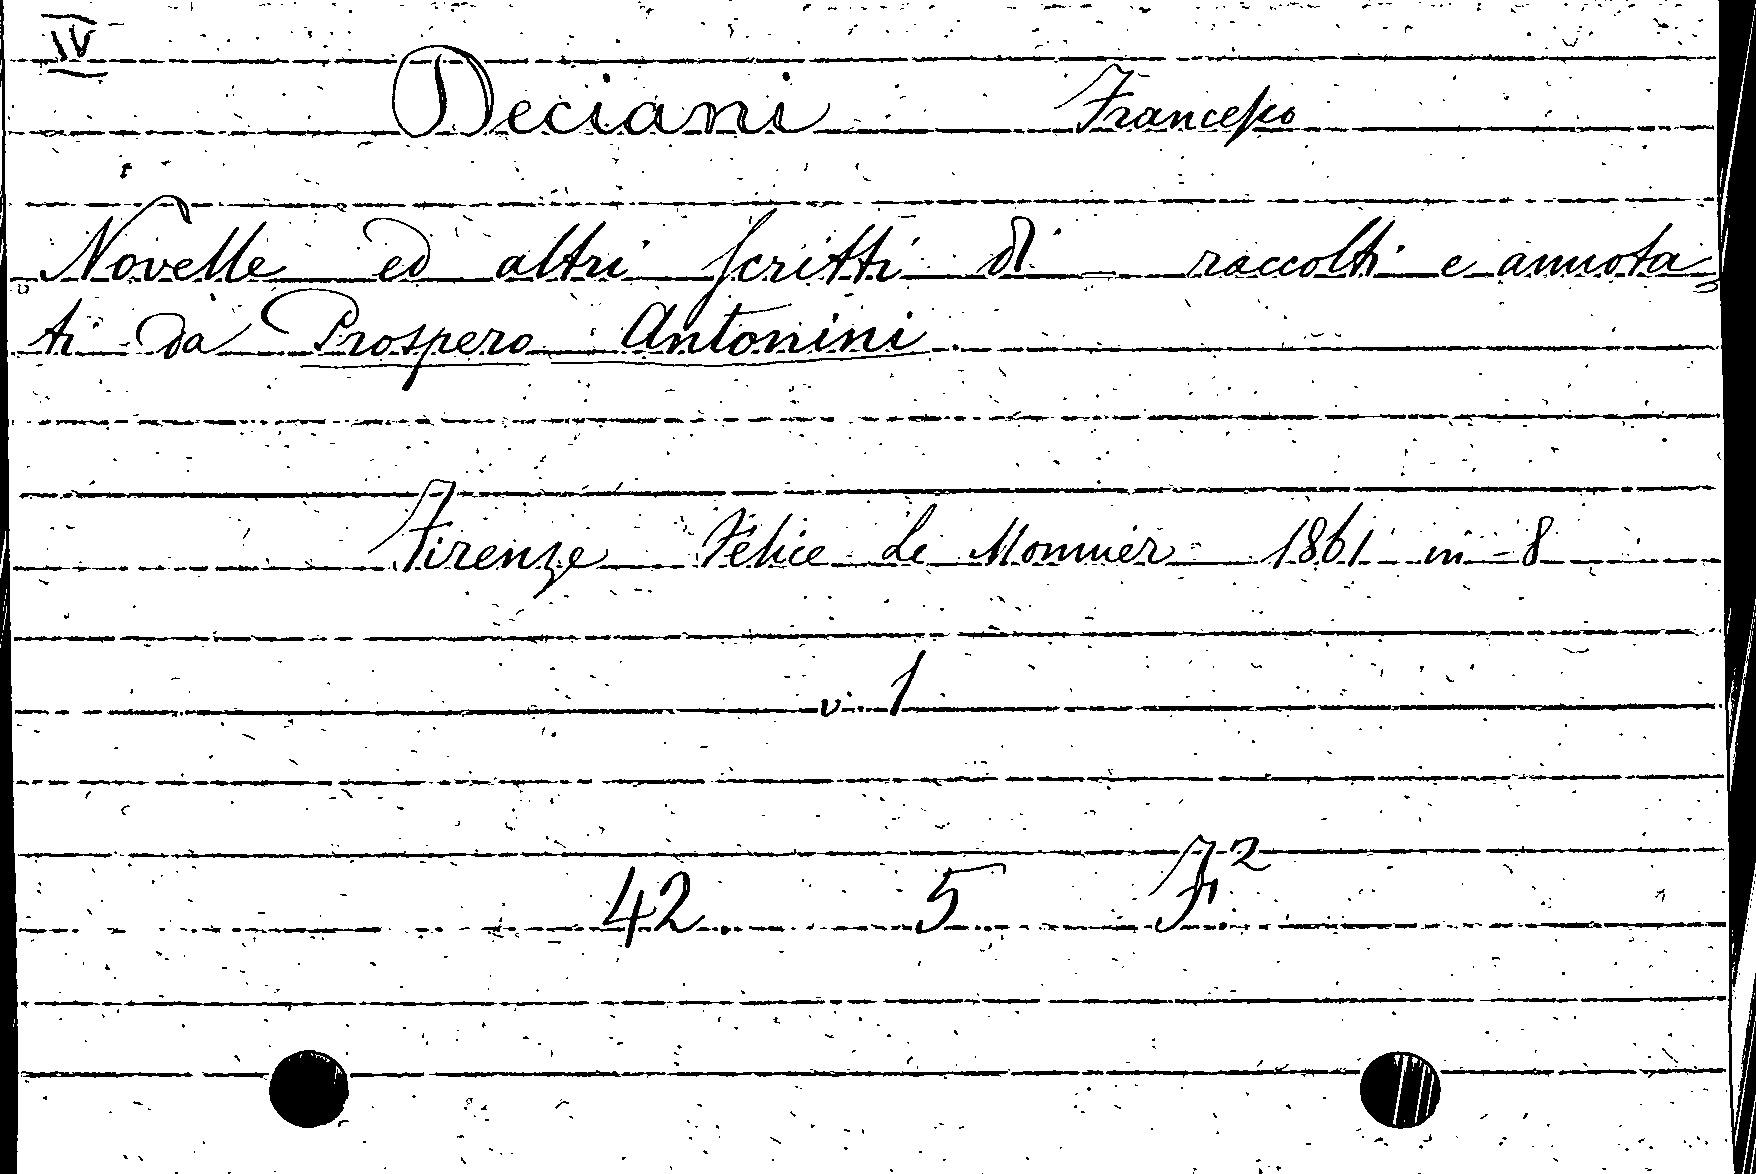 IV
Deciani Francesco
Novelle ed altri scritti di - raccolti e annota=
ti da Prospero Antonini.
Firenze Felice Le Monnier 1861 in 8
v. 1
42. 5 F.2